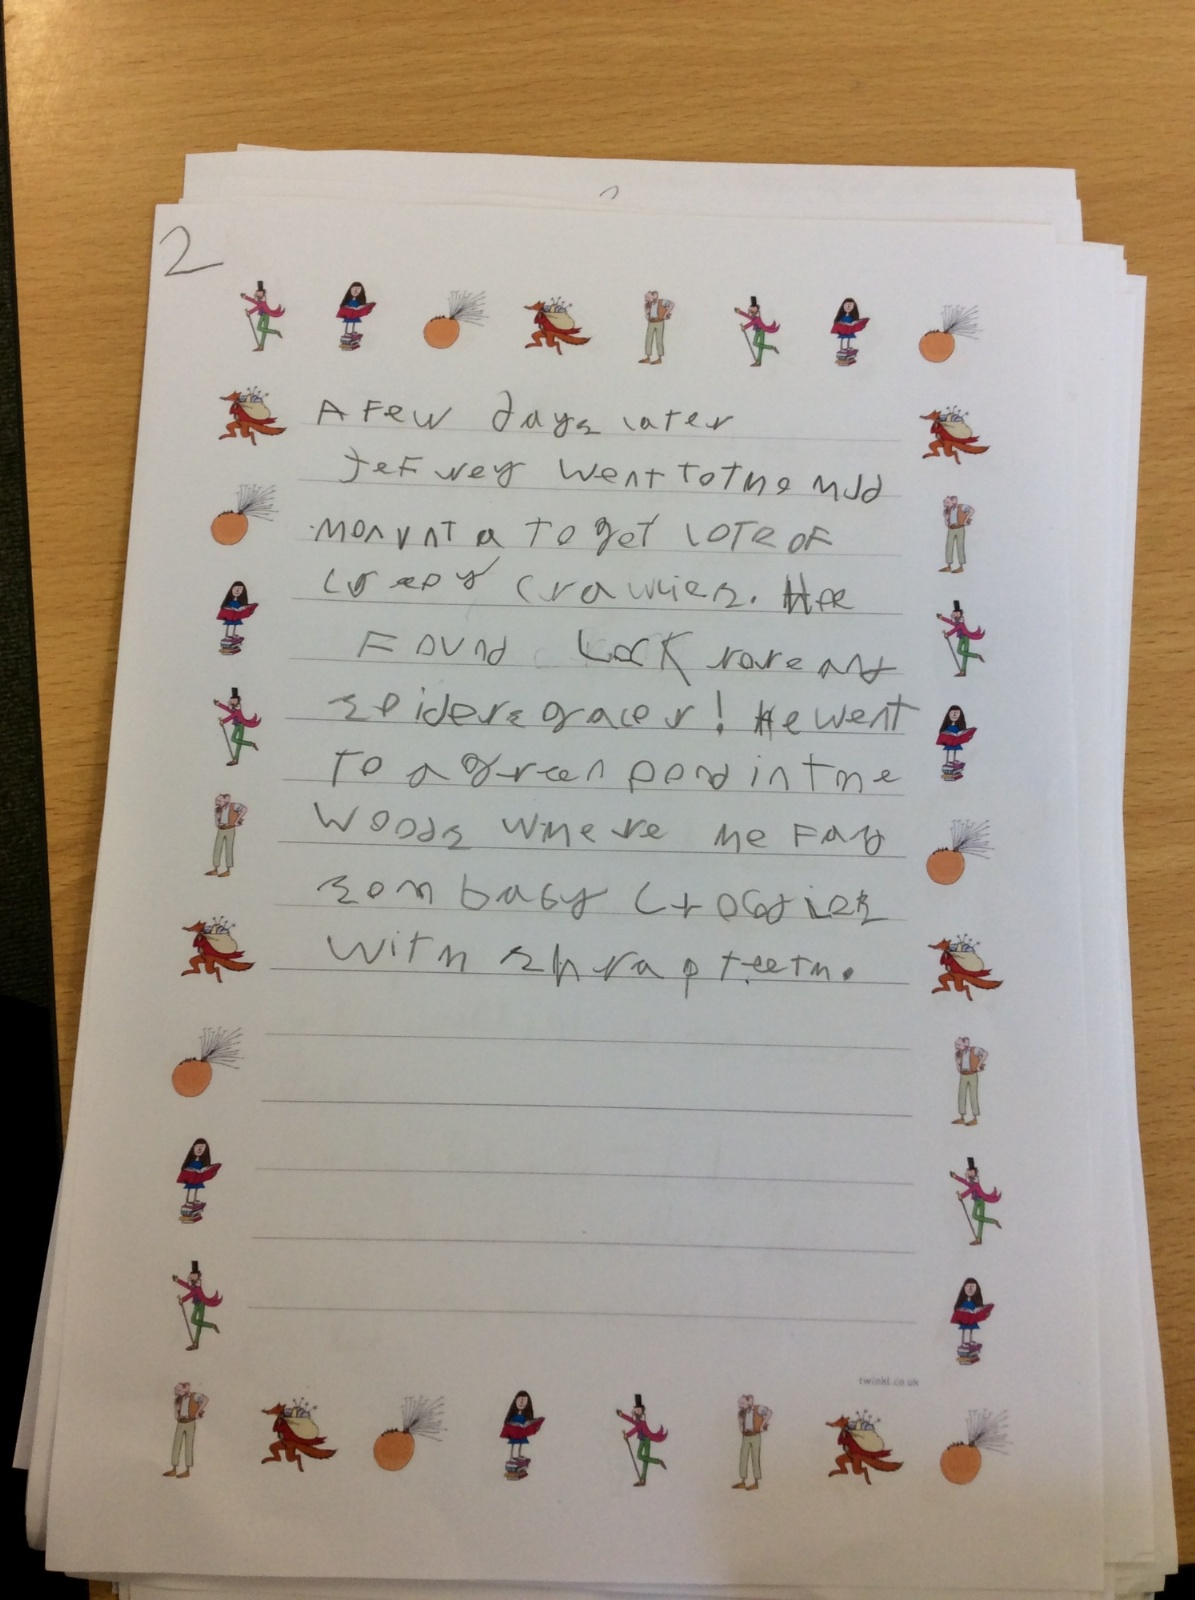 2
A Few days later
Jefrey went to the mud
monunta to get lots of
creepy crawlies. Hee
Found rare and
spiders gracer! He went
to a green pond in the
woods where he
som baby
with shrap teeth.
twinkl.co.uk